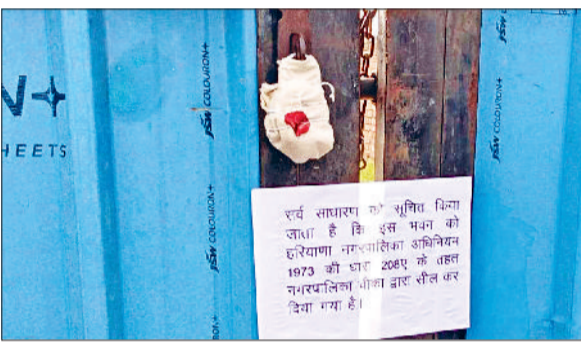 N+
HEETS
JSW COLOURON+
JSW COLOURON+
JSW
JSW COLOURON+
सर्व साधारण को सूचित किया
जाता है कि इस भवन को
हरियाणा नगरपालिका अधिनियन
1973 की धारा 208ए के तहत
नगरपालिका चीका द्वारा सील कर
दिया गया है।